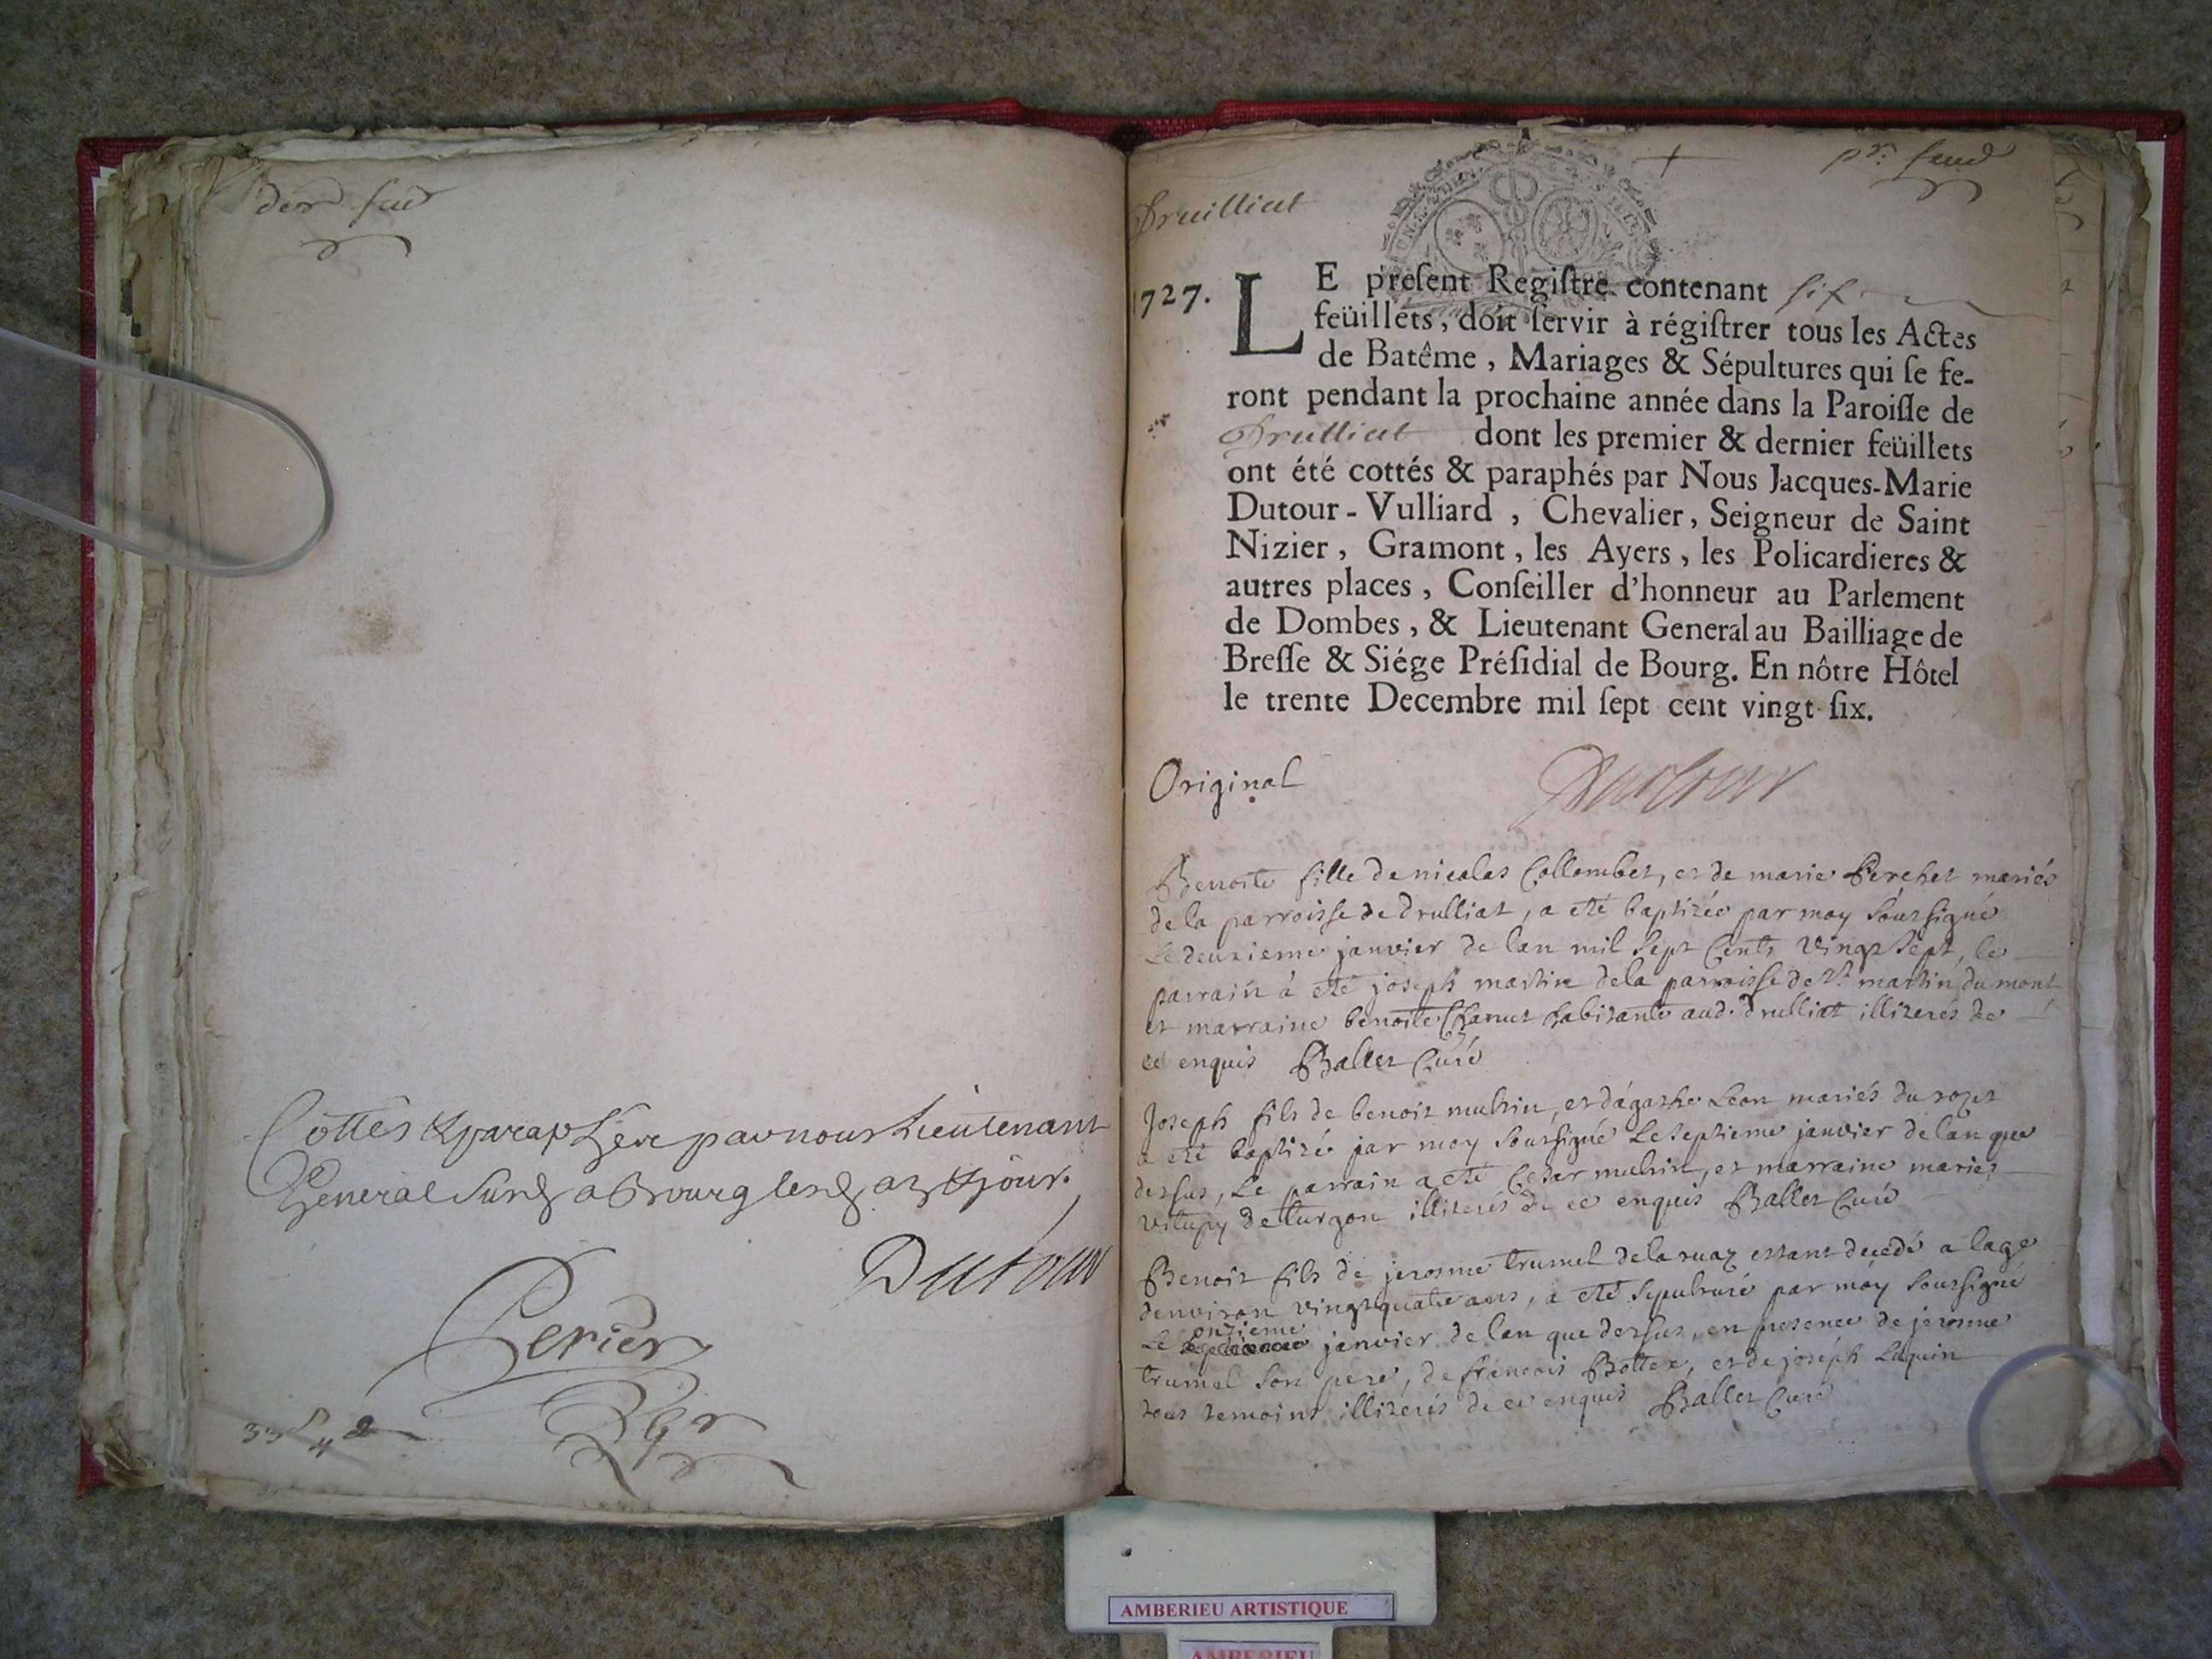 der feüd
Cottés & paraphés par nous Lieutenant
General Susd. a Bourg lesd. an & jour.
Dutour
Perier
Druilliat
pr. feud
1727.
LE preſent Regiſtre contenant six
feüillets, doit ſervir à régiſtrer tous les Actes
de Batême, Mariages & Sépultures qui ſe fe-
ront pendant la prochaine année dans la Paroiſſe de
Drulliat dont les premier & dernier feüillets
ont été cottés & paraphés par Nous Jacques-Marie
Dutour-Vulliard, Chevalier, Seigneur de Saint
Nizier, Gramont, les Ayers, les Policardieres &
autres places, Conſeiller d'honneur au Parlement
de Dombes, & Lieutenant General au Bailliage de
Breſſe & Siége Préſidial de Bourg. En nôtre Hôtel
le trente Decembre mil ſept cent vingt-ſix.
Original
Dutour
Benoite fille de nicolas Collombet, et de marie Perchet mariés
de la parroisse de Drulliat, a eté baptizée par moy soussigné
Le deuxieme janvier de lan mil sept cents vingt sept, le
parrain à eté joseph martin de la parroisse de St. martin du mont
et marraine benoite Chanut habitante aud. Drulliat illiterés de
ce enquis Ballet Curé
Joseph fils de benoit mulrin, et dágathe Leon mariés du
a eté baptizé par moy soussigné Le septieme janvier de lan que
dessus, Le parrain a eté Cesar mulrin, et marraine marie
de turgon illiterés de ce enquis Ballet Curé
Benoit fils de jerosme trumel de la ruaz estant decedé a lage
denviron vingt quatre ans, a eté sepulturé par moy soussigné
Le onzieme janvier de lan que dessus, en presence de jerosme
trumel son pere, de francois Bottex, et de joseph Luquin
tous temoins illiterés de ce enquis Ballet Curé
AMBERIEU ARTISTIQUE
AMBERIEU